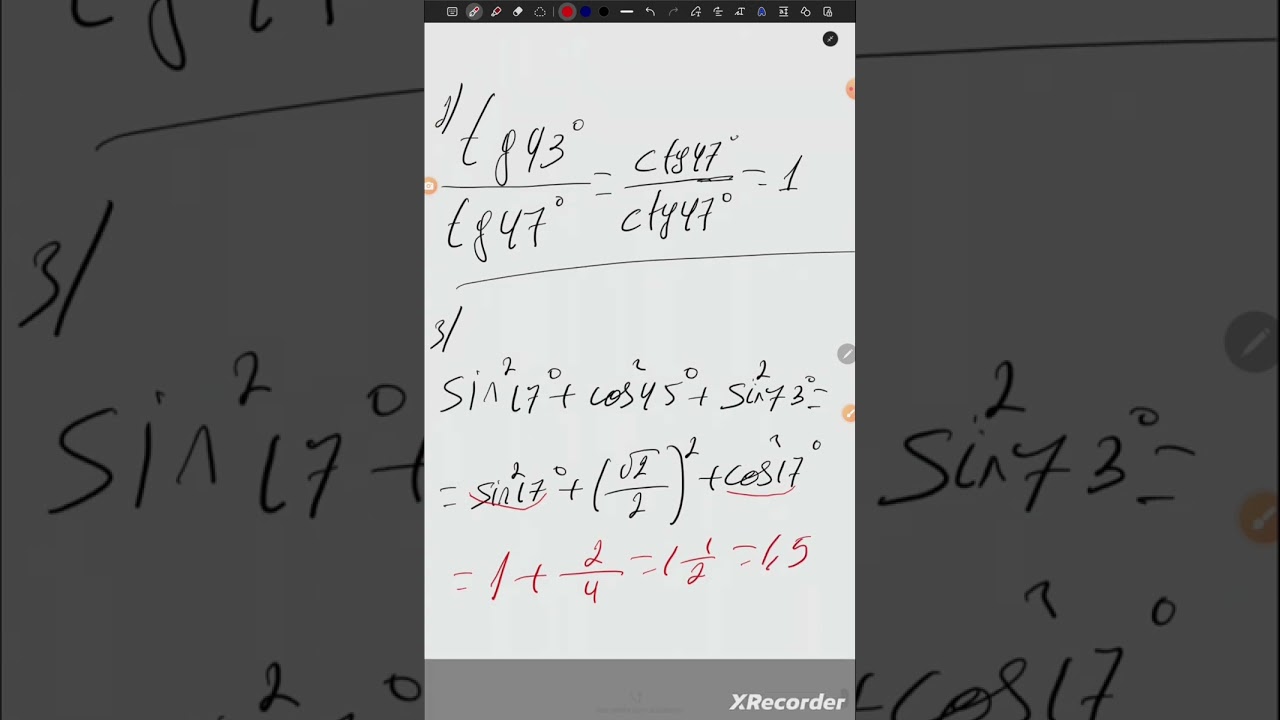 2/ tg43° / tg47° = ctg47° / ctg47° = 1
3/
sin²17° + cos²45° + sin²73° =
= sin²17° + (√2/2)² + cos²17°
= 1 + 2/4 = 1 1/2 = 1,5
XRecorder